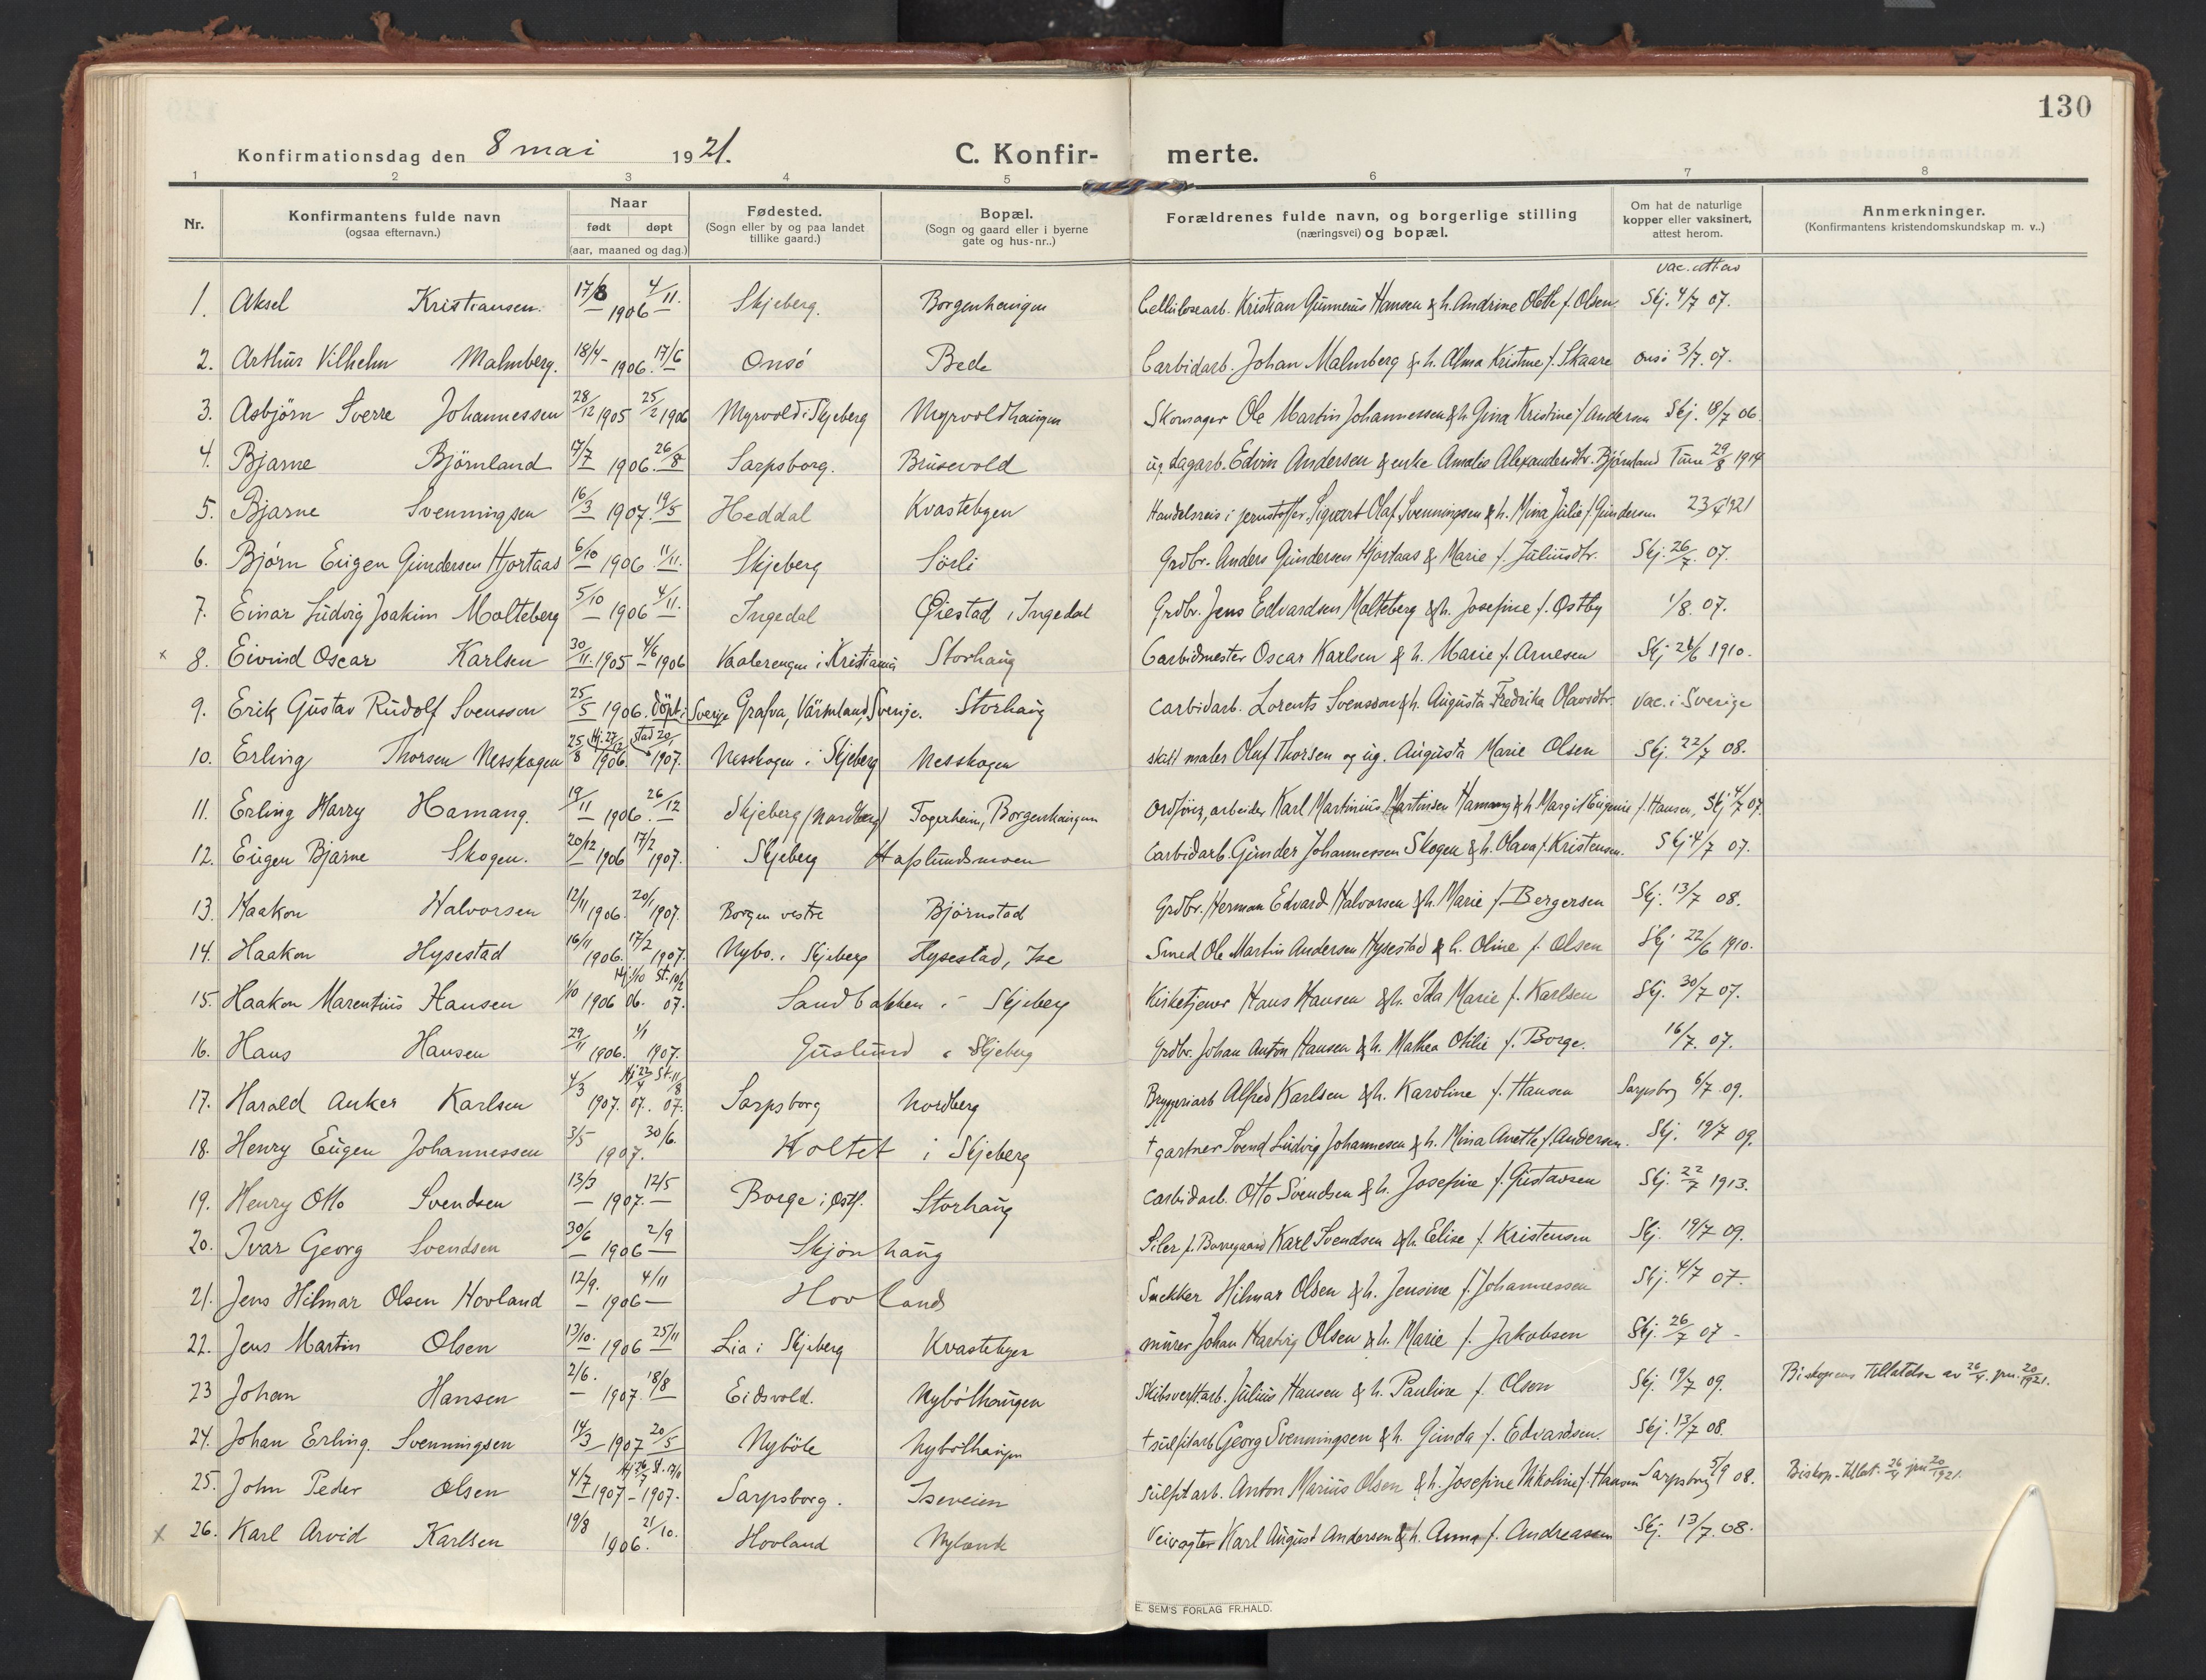 130
Konfirmationsdag den 8 mai 1921. C. Konfir- merte.
1 2 3 4 5 6 7 8
Nr. Konfirmantens fulde navn (ogsaa efternavn.) Naar født døpt (aar, maaned og dag.) Fødested. (Sogn eller by og paa landet tillike gaard.) Bopæl. (Sogn og gaard eller i byerne gate og hus-nr..) Forældrenes fulde navn, og borgerlige stilling (næringsvei) og bopæl. Om hat de naturlige kopper eller vaksinert, attest herom. Anmerkninger. (Konfirmantens kristendomskundskap m. v..)
1. Aksel Kristiansen. 17/8 1906 4/11. Skjeberg. Borgenhaugen Cellulosearb. Kristian Gunnerius Hansen & h. Andrine Olethe f. Olsen vac. att av Skj. 4/7 07.
2. Arthur Vilhelm Malmberg. 18/4 1906. 17/6 Onsö Bede Carbidarb. Johan Malmberg & h. Alma Kristine f. Skaare Onsö 3/7. 07.
3. Asbjörn Sverre Johannessen 28/12 1905 25/2 1906 Myrvold i Skjeberg Myrvoldhaugen Skomager Ole Martin Johannessen & h. Gina Kristine f. Andersen Skj. 18/7 06
4. Bjarne Björnland 17/7 1906. 26/8 Sarpsborg. Brusevold ug. dagarb. Edvin Andersen & enke Amalie Alexandersdtr. Björnland Tune 29/8 1914
5. Bjarne Svenningsen 16/3 1907. 19/5 Heddal Kvastebyen Handelsreis i Sigvart Olaf Svenningsen & h. Mina Julie f. Gundersen 23/4 1921
6. Björn Eugen Gundersen Hjortaas 6/10 1906 11/11. Skjeberg Sörli Grdbr. Anders Gundersen Hjortaas & Marie f. Juliusdtr. Skj. 26/7. 07.
7. Einar Ludvig Joakim Molteberg 5/10 1906 4/11. Ingedal Øiestad i Ingedal Grdbr. Jens Edvardsen Molteberg & h. Josefine f. Østby 1/8. 07.
x 8. Eivind Oscar Karlsen 30/11. 1905 4/6 1906 Vaalerengen i Kristiania Storhaug Carbidmester Oscar Karlsen & h. Marie f. Arnesen Skj 21/6 1910.
9. Erik Gustav Rudolf Svensson 25/5 1906. döpt i Sverige Grafva, Värmland, Sverige. Storhaug Carbidarb. Lorents Svensson & h. Augusta Fredrika Olavsdtr. Vac. i Sverige
10. Erling Thorsen Nesskogen 25/8 1906. Hj. 27/12 stad 20/1 1907. Nesskogen i Skjeberg Nesskogen maler Oluf Thorsen og ug. Augusta Marie Olsen Skj. 22/7 08.
11. Erling Harry Hamang. 19/11 1906. 26/12 Skjeberg (Nordberg) Fagerheim, Borgenhaugen Ordförer, arbeider Karl Martinius Martinsen Hamang & h. Margit Eugenie f. Hansen, Skj 4/7 07.
12. Eugen Bjarne Skogen. 20/12 1906 17/2 1907. Skjeberg Hafslundsmoen Carbidarb. Gunder Johannessen Skogen & h. Olava f. Kristensen. Skj 4/7 07.
13. Haakon Halvorsen 12/11 1906. 20/1 1907. Borgen vestre Björnstad Grdbr. Herman Edvard Halvorsen & h. Marie f. Bergersen Skj. 13/7 08.
14. Haakon Hysestad 16/11 1906. 17/2 1907. Nybo. i Skjeberg Hysestad, Ise Smed Ole Martin Andersen Hysestad & h. Oline f. Olsen Skj 22/6 1910.
15. Haakon Marentius Hansen 1/10 1906 Hj. 1/10 06. St. 10/2 07. Sandbakken i Skjeberg Kirketjener Hans Hansen & h. Ida Marie f. Karlsen Skj. 30/7 07.
16. Hans Hansen 29/11 1906. 1/1 1907. Guslund i Skjeberg Grdbr. Johan Anton Hansen & h. Mathea Otilie f. Borge. 16/7. 07.
17. Harald Anker Karlsen 4/3 1907. Hj 22/4 07. St. 11/8 07. Sarpsborg Nordberg Bryggeriarb Alfred Karlsen & h. Karoline f. Hansen Sarpsborg 6/7 09.
18. Henry Eugen Johannessen 3/5 1907. 30/6. Holtet i Skjeberg † gartner Svend Ludvig Johannesen & h. Mina Anethe f. Andersen. Skj. 19/7 09.
19. Henry Otto Svendsen 13/3 1907. 12/5 Borge i Østf. Storhaug Carbidarb. Otto Svendsen & h. Josefine f. Gustavsen Skj. 22/7 1913.
20. Ivar Georg Svendsen 30/6 1906 2/9 Skjönhaug Karl Svendsen & h. Elise f. Kristensen Skj. 19/7 09.
21. Jens Hilmar Olsen Hovland 12/9. 1906 4/11 Hovland Snekker Hilmar Olsen & h. Jensine f. Johannessen Skj. 4/7 07.
22. Jens Martin Olsen 13/10. 1906 25/11 Lia i Skjeberg Kvastebyen murer Johan Hartvig Olsen & h. Marie f. Jakobsen Skj. 26/7 07
23 Johan Hansen 2/6. 1907. 18/8 Eidsvold. Nybölhaugen Skibsverftarb. Julius Hansen & h. Pauline f. Olsen Skj. 19/7 09. Biskopens tillatelse av 26/4. jnr. 20/1921.
24. Johan Erling. Svenningsen 14/3 1907 20/5 Nyböle Nybölhaugen † sulfitarb Georg Svenningsen & h. Gunda f. Edvardsen. Skj. 13/7 08.
25. John Peder Olsen 4/7 1907 Hj 26/7 St. 17/11 1907. Sarpsborg. Iseveien Sulfitarb. Anton Marius Olsen & h. Josefine Nikoline f. Hansen Sarpsborg 5/9 08. Biskop. tillat. 26/4 jnr 20/1921.
x 26. Karl Arvid Karlsen 19/8 1906. 21/10. Hovland Nylende Veivogter Karl August Andersen & h. Anna f. Andreassen Skj. 13/7. 08.
E. SEM'S FORLAG FR.HALD.